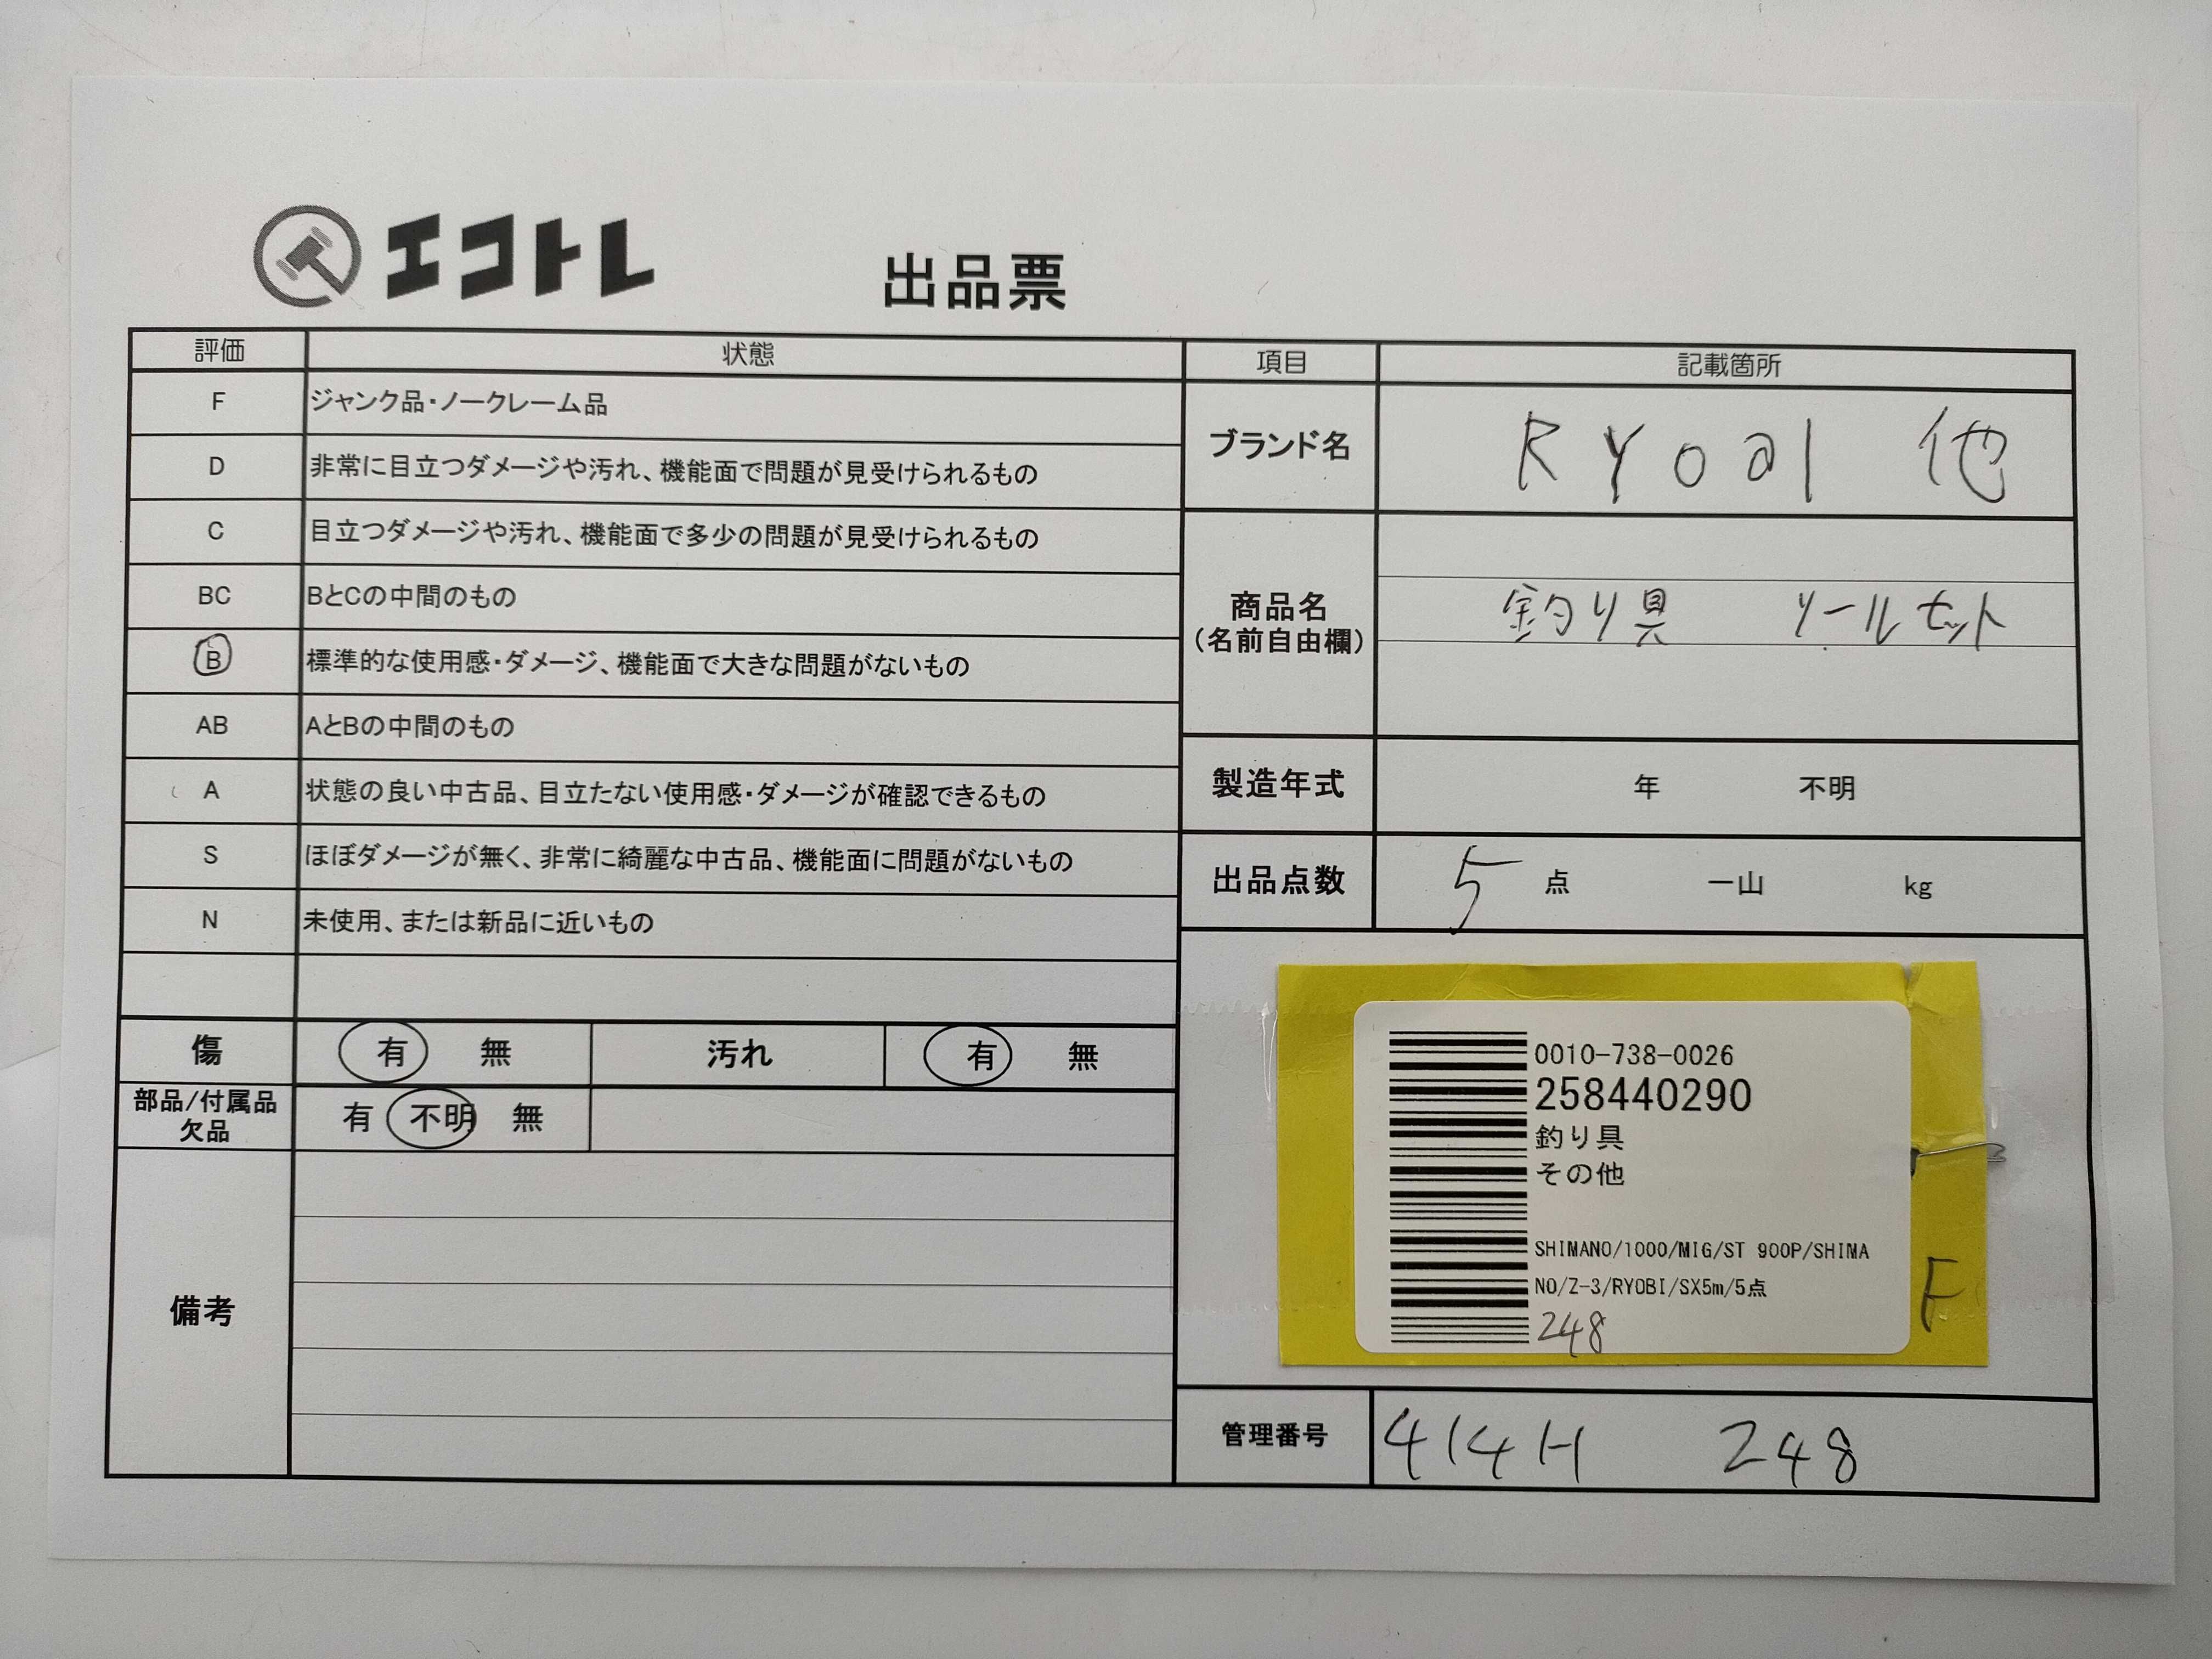 エコトレ
出品票
評価 状態
F ジャンク品・ノークレーム品
D 非常に目立つダメージや汚れ、機能面で問題が見受けられるもの
C 目立つダメージや汚れ、機能面で多少の問題が見受けられるもの
BC BとCの中間のもの
B 標準的な使用感・ダメージ、機能面で大きな問題がないもの
AB AとBの中間のもの
A 状態の良い中古品、目立たない使用感・ダメージが確認できるもの
S ほぼダメージが無く、非常に綺麗な中古品、機能面に問題がないもの
N 未使用、または新品に近いもの
傷 有 無 汚れ 有 無
部品/付属品
欠品 有 不明 無
備考
項目 記載箇所
ブランド名 RYoal 他
商品名
(名前自由欄) 釣り具 リールセット
製造年式 年 不明
出品点数 5 点 一山 kg
0010-738-0026
258440290
釣り具
その他
SHIMANO/1000/MIG/ST 900P/SHIMA
NO/Z-3/RYOBI/SX5m/5点
248
F
管理番号 414H 248